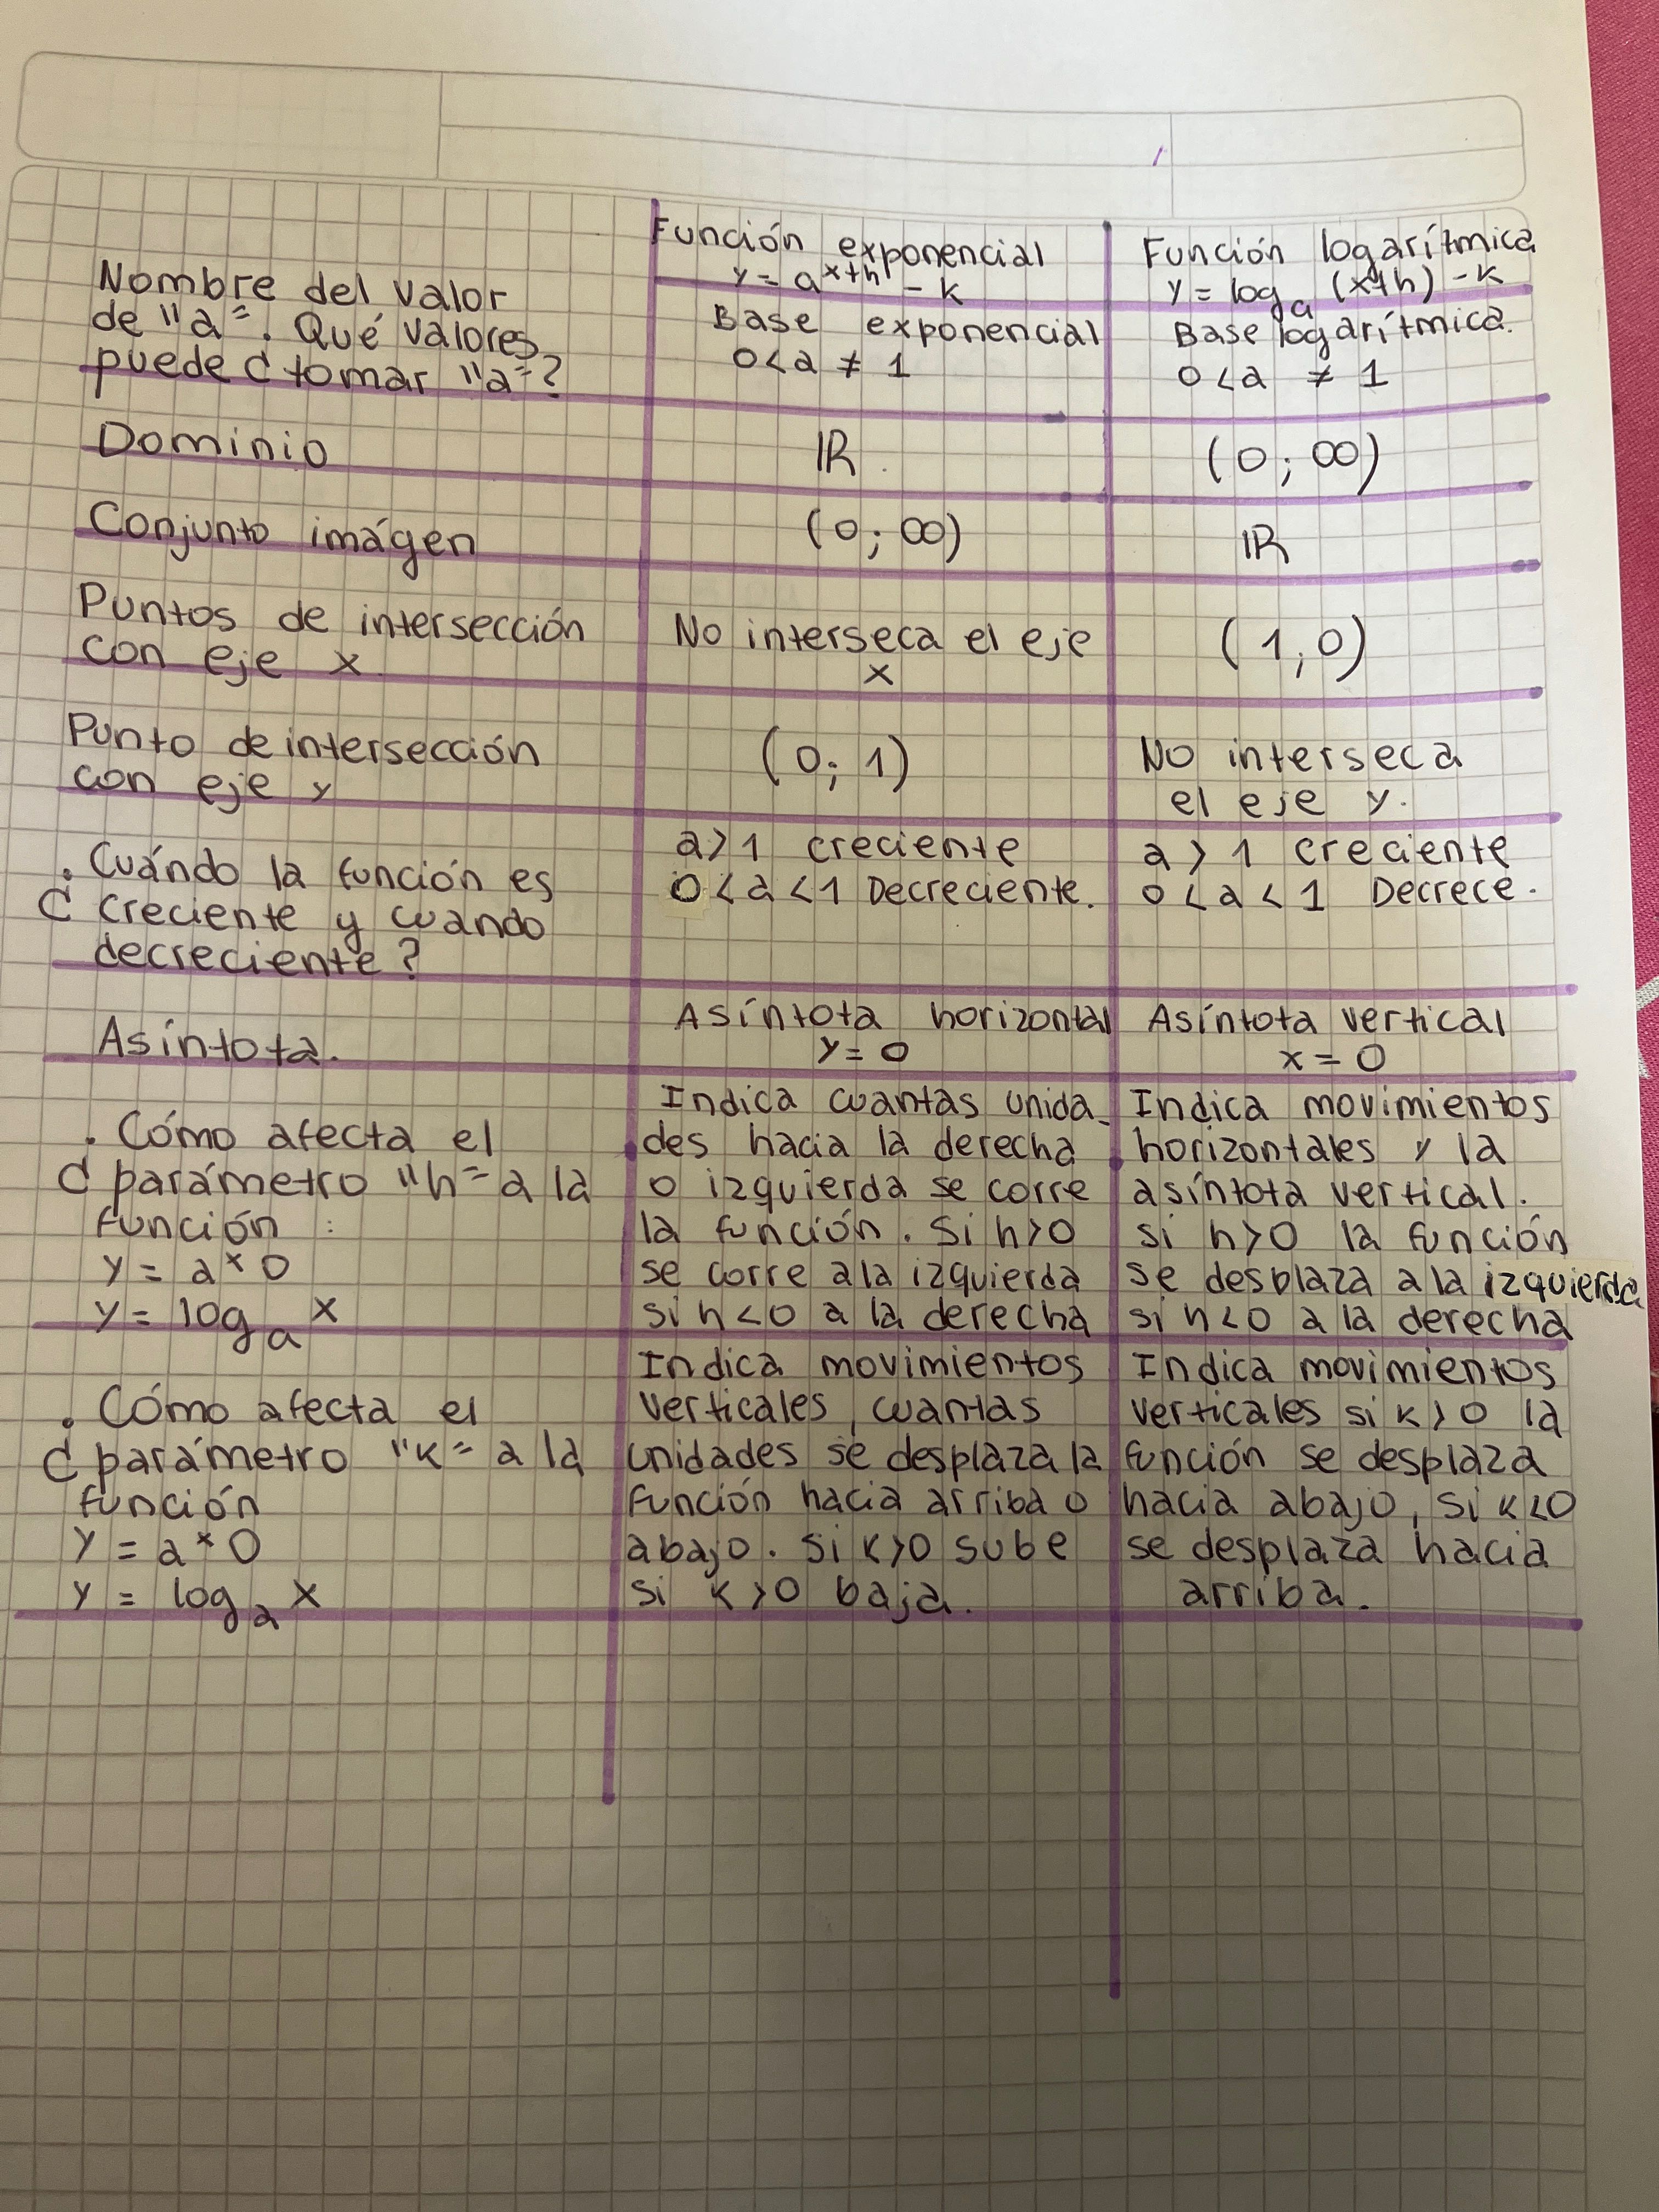 Función exponencial
y = a^x+h - k
Función logarítmica
y = log_a (x+h) - k
Nombre del valor
de "a". Qué valores
puede ¿tomar "a"?
Base exponencial
0<a ≠ 1
Base logarítmica.
0<a ≠ 1
Dominio
IR
(0; ∞)
Conjunto imágen
(0; ∞)
IR
Puntos de intersección
con eje x
No interseca el eje
x
(1,0)
Punto de intersección
con eje y
(0; 1)
No interseca
el eje y.
¿Cuándo la función es
creciente y cuando
decreciente?
a>1 creciente
0<a<1 Decreciente.
a>1 creciente
0<a<1 Decrece.
Asíntota.
Asíntota horizontal
y=0
Asíntota vertical
x=0
¿Cómo afecta el
parámetro "h" a la
función:
y = a^x 0
y = log_a x
Indica cuantas unida-
des hacia la derecha
o izquierda se corre
la función. Si h>0
se corre a la izquierda
si h<0 a la derecha
Indica movimientos
horizontales y la
asíntota vertical.
si h>0 la función
se desplaza a la izquierda
si h<0 a la derecha
¿Cómo afecta el
parámetro "k" a la
función
y = a^x 0
y = log_a x
Indica movimientos
verticales, cuantas
unidades se desplaza la
función hacia arriba o
abajo. Si k>0 sube
si k>0 baja.
Indica movimientos
verticales si k>0 la
función se desplaza
hacia abajo, si k<0
se desplaza hacia
arriba.